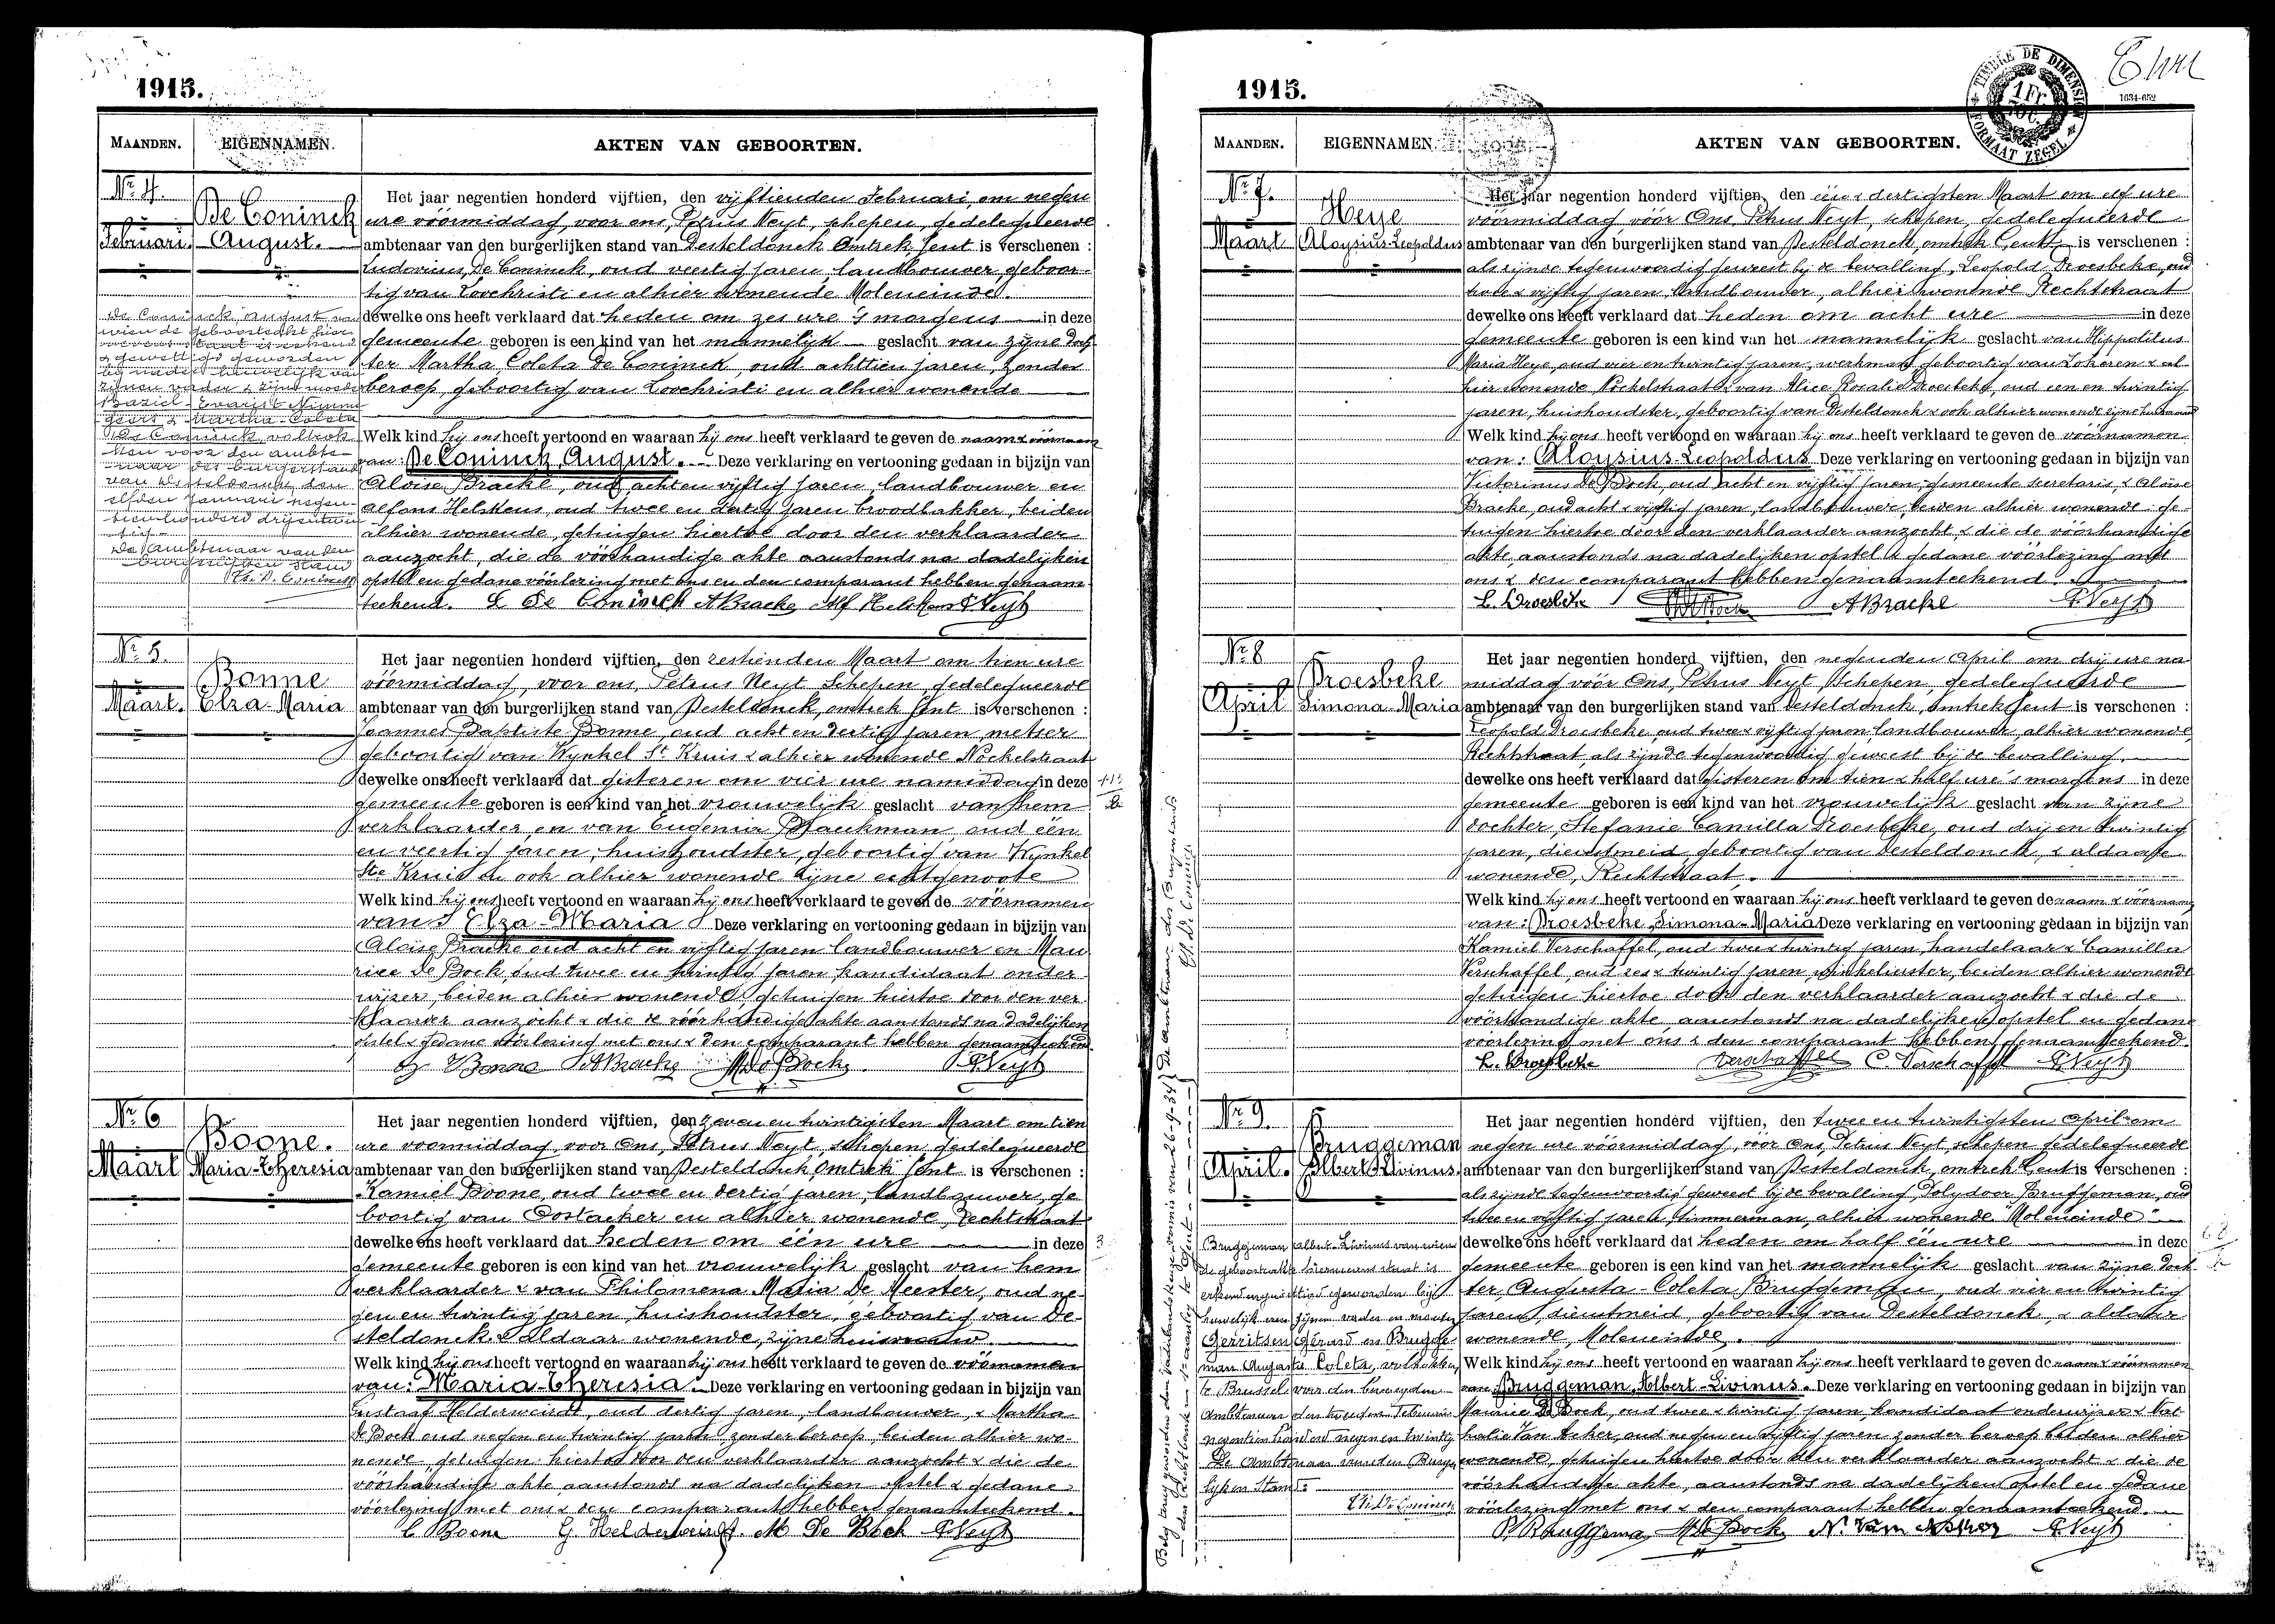 1915.
MAANDEN. EIGENNAMEN. AKTEN VAN GEBOORTEN.
Nr 4.
Februari.
De Coninck
August.
Het jaar negentien honderd vijftien, den vijftienden Februari, om negen
ure vöormiddag, voor ons, Petrus Neyt, schepen, gedelegueerde
ambtenaar van den burgerlijken stand van Desteldonck Omtrek Gent is verschenen :
Ludovicus, De Coninck, oud veertig jaren landbouwer geboor-
tig van Loochristi en alhier wonende Moleneinde.
dewelke ons heeft verklaard dat heden om zes ure 's morgens in deze
gemeente geboren is een kind van het mannelijk geslacht van zijne doch
ter Martha Coleta De Coninck, oud achttien jaren, zonder
beroep, geboortig van Loochristi en alhier wonende
Welk kind hij ons heeft vertoond en waaraan hij ons heeft verklaard te geven de naam & vöornaam
van: De Coninck, August. Deze verklaring en vertooning gedaan in bijzijn van
Aloise Bracke, oud acht en vijftig jaren, landbouwer en
Alfons Helskens, oud twee en dertig jaren broodbakker, beiden
alhier wonende, getuigen hiertoe door den verklaarder
aanzocht, die de vöorhandige akte aanstonds na dadelijken
opstel en gedane vöorlezing met ons en den comparant hebben genaam
teekend. L De Coninck ABracke Alf Helskens PNeyt
De Coninck August van
wien de geboorteakt hier
nevens staat is erkend
& gewettigd geworden
bij nader huwelijk van
zijnen vader & zijne moeder
Kaziel-Evarist
& Martha-Coleta
De Coninck voltrok
ken voor den ambte-
naar der burgerstand
van Desteldonck den
elfden Januari negen-
tien honderd drijentwin
tig.
De Ambtenaar van den
burgerlijken stand
Th. D. Coninck
Nr 5.
Maart.
Bonne
Elza-Maria
Het jaar negentien honderd vijftien, den zestienden Maart om tien ure
vöormiddag, voor ons, Petrus Neyt Schepen, gedelegueerde
ambtenaar van den burgerlijken stand van Desteldonck, omtrek Gent is verschenen :
Joannes Baptiste Bonne, oud acht en dertig jaren, metser
geboortig van Wynkel St Kruis & alhier wonende Nockelstraat
dewelke ons heeft verklaard dat gisteren om vier ure namiddag in deze
gemeente geboren is een kind van het vrouwelijk geslacht van hem
verklaarder en van Eugenia Blauckman, oud één
en veertig jaren, huishoudster, geboortig van Wynkel
Ste Kruis en ook alhier wonende zijne echtgenoote
Welk kind hij ons heeft vertoond en waaraan hij ons heeft verklaard te geven de vöornamen
van Elza-Maria Deze verklaring en vertooning gedaan in bijzijn van
Aloise Bracke oud acht en vijftig jaren landbouwer en Mau
rice De Bock, oud twee en twintig jaren kandidaat onder
wijzer, beiden alhier wonende, getuigen hiertoe door den ver
klaarder aanzocht & die de vöorhandige akte aanstonds na dadelijken
opstel & gedane vöorlezing met ons & den comparant hebben genaamteekend
Bonne ABracke MDeBock PNeyt
Nr 6
Maart
Boone.
Maria-Theresia
Het jaar negentien honderd vijftien, den zeven en twintigsten Maart om tien
ure voormiddag, voor Ons, Petrus Neyt, schepen, gedelegueerde
ambtenaar van den burgerlijken stand van Desteldonck, Omtrek Gent is verschenen :
Kamiel Boone, oud twee en dertig jaren, landbouwer, ge
boortig van Oostacker en alhier wonende, Rechtstraat
dewelke ons heeft verklaard dat heden om één ure in deze
gemeente geboren is een kind van het vrouwelijk geslacht van hem
verklaarder & van Philomena Maria De Meester, oud ne-
gen en twintig jaren, huishoudster, geboortig van De-
steldonck & aldaar wonende, zijne huisvrouw
Welk kind hij ons heeft vertoond en waaraan hij ons heeft verklaard te geven de vöornamen
van: Maria-Theresia. Deze verklaring en vertooning gedaan in bijzijn van
Gustaaf Helderweirdt, oud dertig jaren, landbouwer, & Martha
De Bock oud negen en twintig jaren, zonder beroep, beiden alhier wo-
nende, getuigen hiertoe door den verklaarder aanzocht & die de
vöorhandige akte aanstonds na dadelijken opstel & gedane
vöorlezing met ons & den comparant hebben genaamteekend.
C Boone G. Helderweirdt. M De Bock PNeyt
1915.
TIMBRE DE DIMENSION
1 Fr.
FORMAAT ZEGEL
1634-652
MAANDEN. EIGENNAMEN. AKTEN VAN GEBOORTEN.
Nr 7.
Maart
Heye
Aloysius-Leopoldus
Het jaar negentien honderd vijftien, den één & dertigsten Maart om elf ure
vöormiddag vöor Ons, Petrus Neyt, schepen, gedelegueerde
ambtenaar van den burgerlijken stand van Desteldonck, omtrek Gent is verschenen :
als zijnde tegenwoordig geweest bij de bevalling, Leopold Droesbeke, oud
twee & vijftig jaren, landbouwer, alhier wonende Rechtstraat
dewelke ons heeft verklaard dat heden om acht ure in deze
gemeente geboren is een kind van het mannelijk geslacht van Hippolitus
Maria Heye, oud vier en twintig jaren, werkman, geboortig van Lokeren & al-
hier wonende, Nockelstraat & van Alice Rosalie Droesbeke, oud een en twintig
jaren, huishoudster, geboortig van Desteldonck & ook alhier wonende zijne huisvrouw
Welk kind hij ons heeft vertoond en waaraan hij ons heeft verklaard te geven de vöornamen
van: Aloysius-Leopoldus Deze verklaring en vertooning gedaan in bijzijn van
Victorinus De Bock, oud acht en vijftig jaren, gemeente secretaris, & Aloise
Bracke, oud acht & vijftig jaren, landbouwer, beiden alhier wonende, ge-
tuigen hiertoe door den verklaarder aanzocht, & die de vöorhandige
akte, aanstonds na dadelijken opstel & gedane vöorlezing met
ons & den comparant hebben genaamteekend.
L. Droesbeke ABracke PNeyt
Nr 8
April
Droesbeke
Simona-Maria
Het jaar negentien honderd vijftien, den negenden April om drij ure na
middag vöor Ons, Petrus Neyt, Schepen, gedelegueerde
ambtenaar van den burgerlijken stand van Desteldonck, omtrek Gent is verschenen :
Leopold Droesbeke, oud twee & vijftig jaren, landbouwer, alhier wonende,
Rechtstraat, als zijnde tegenwoordig geweest bij de bevalling.
dewelke ons heeft verklaard dat gisteren om tien & half ure 's morgens in deze
gemeente geboren is een kind van het vrouwelijk geslacht van zijne
dochter, Stefanie Camilla Droesbeke, oud drij en twintig
jaren, dienstmeid, geboortig van Desteldonck, & aldaar
wonende, Rechtstraat.
Welk kind hij ons heeft vertoond en waaraan hij ons heeft verklaard te geven de naam & vöornamen
van: Droesbeke, Simona-Maria Deze verklaring en vertooning gedaan in bijzijn van
Kamiel Verschaffel, oud twee & twintig jaren, handelaar & Camilla
Verschaffel, oud zes & twintig jaren, winkelierster, beiden alhier wonende
getuigen hiertoe door den verklaarder aanzocht & die de
vöorhandige akte, aanstonds na dadelijken opstel en gedane
voorlezing met ons & den comparant hebben genaamteekend.
L. Droesbeke Verschaffel C. Verschaffel PNeyt
Nr 9.
April.
Bruggeman
Albert-Livinus.
Het jaar negentien honderd vijftien, den twee en twintigsten April om
negen ure vöormiddag, voor Ons, Petrus Neyt, schepen gedelegueerde
ambtenaar van den burgerlijken stand van Desteldonck, omtrek Gent is verschenen :
als zijnde tegenwoordig geweest bij de bevalling, Polydoor Bruggeman, oud
twee en vijftig jaren, timmerman, alhier wonende "Moleneinde"
dewelke ons heeft verklaard dat heden om half één ure in deze
gemeente geboren is een kind van het mannelijk geslacht van zijne doch
ter Augusta-Coleta Bruggeman, oud vier en twintig
jaren, dienstmeid, geboortig van Desteldonck, & aldaar
wonende, Moleneinde.
Welk kind hij ons heeft vertoond en waaraan hij ons heeft verklaard te geven de naam & vöornamen
van: Bruggeman, Albert-Livinus. Deze verklaring en vertooning gedaan in bijzijn van
Maurice De Bock, oud twee & twintig jaren, kandidaat onderwijzer & Nat-
halie Van Acker, oud negen en vijftig jaren zonder beroep beiden alhier
wonende, getuigen hiertoe door den verklaarder aanzocht & die de
vöorhandige akte, aanstonds na dadelijken opstel en gedane
vöorlezing met ons & den comparant hebben genaamteekend.
P. Bruggeman MDeBock N. Van Acker PNeyt
Bruggeman Albert-Livinus van wien
de geboorteakte hiernevens staat is
erkend en gewettigd geworden bij
huwelijk van zijnen vader en moeder
Gerritsen Gérard en Brugge-
man Augusta Coleta, voltrokken
te Brussel voor den bevoegden
Ambtenaar den tweeden Februari
negentien honderd negen en twintig
De Ambtenaar van den Burger
lijken Stand.
Th. De Coninck